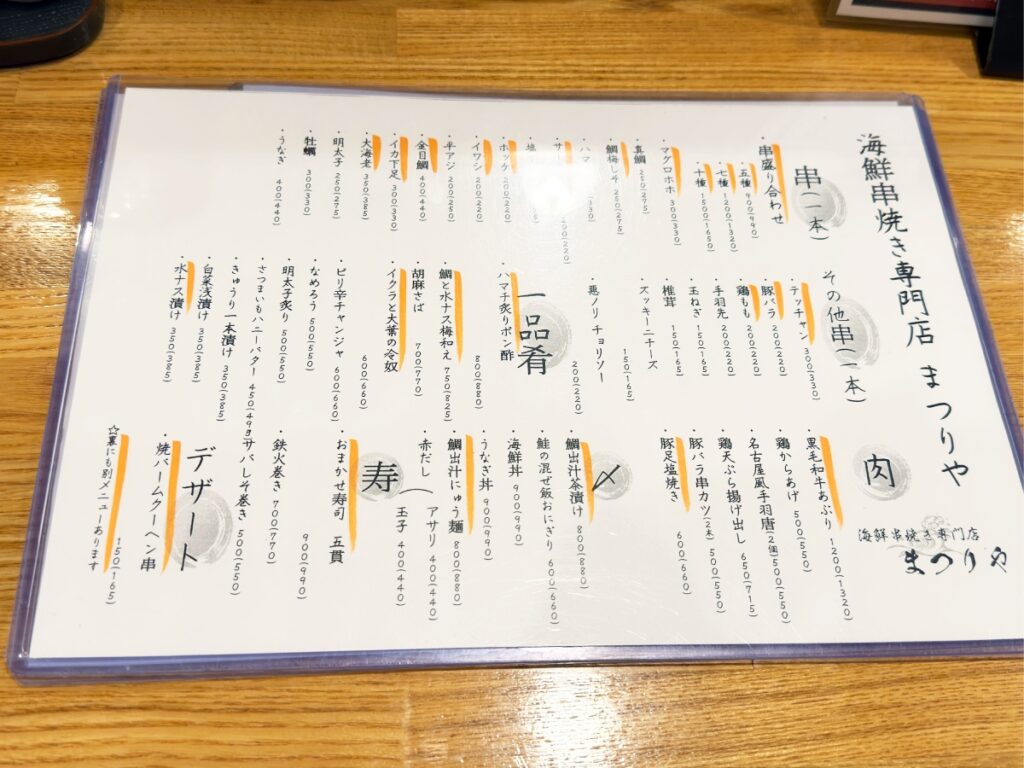 海鮮串焼き専門店 まつりや
串(一本)
・串盛り合わせ
・五種 900(990)
・七種 1200(1320)
・十種 1500(1650)
・マグロホホ 300(330)
・真鯛 250(275)
・鯛梅しそ 250(275)
・ハマ
・サー
・塩
・ホッケ 200(220)
・イワシ 200(220)
・半アジ 200(220)
・金目鯛 400(440)
・イカ下足 300(330)
・大海老 350(385)
・明太子 250(275)
・牡蠣 300(330)
・うなぎ 400(440)
その他串(一本)
・テッチャン 300(330)
・豚バラ 200(220)
・鶏もも 200(220)
・手羽先 200(220)
・玉ねぎ 150(165)
・椎茸 150(165)
・ズッキーニチーズ 150(165)
・悪ノリ チョリソー 200(220)
一品肴
・ハマチ炙りポン酢 800(880)
・鯛と水ナス梅和え 750(825)
・胡麻さば 700(770)
・イクラと大葉の冷奴 600(660)
・ピリ辛チャンジャ 600(660)
・なめろう 500(550)
・明太子炙り 500(550)
・さつまいもハニーバター 450(495)
・きゅうり一本漬け 350(385)
・白菜浅漬け 350(385)
・水ナス漬け 350(385)
肉
・黒毛和牛あぶり 1200(1320)
・鶏からあげ 500(550)
・名古屋風手羽唐(2個) 500(550)
・鶏天ぷら揚げ出し 650(715)
・豚バラ串カツ(2本) 500(550)
・豚足塩焼き 600(660)
〆
・鯛出汁茶漬け 800(880)
・鮭の混ぜ飯おにぎり 600(660)
・海鮮丼 900(990)
・うなぎ丼 900(990)
・鯛出汁にゅう麺 800(880)
・赤だし
アサリ 400(440)
玉子 400(440)
寿
・おまかせ寿司 五貫 900(990)
・鉄火巻き 700(770)
・サバしそ巻き 500(550)
デザート
・焼バームクーヘン串 150(165)
☆裏にも別メニューあります
海鮮串焼き専門店
まつりや